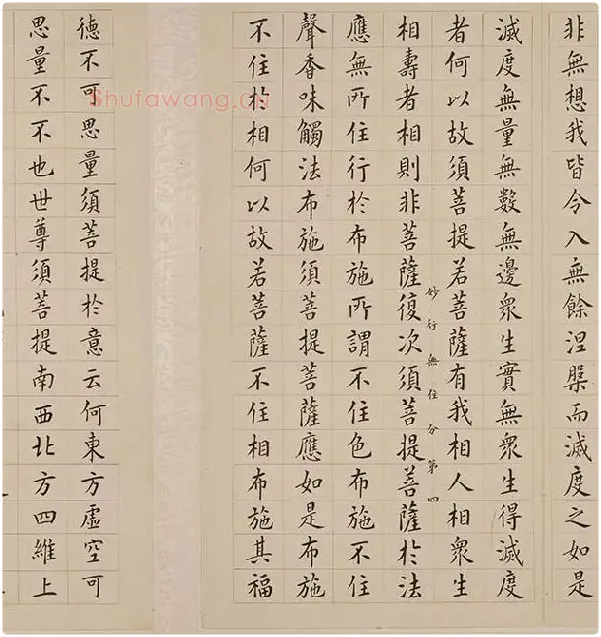 非無想我皆令入無餘涅槃而滅度之如是
滅度無量無數無邊眾生實無眾生得滅度
者何以故須菩提若菩薩有我相人相眾生
妙行無住分第四
相壽者相則非菩薩復次須菩提菩薩於法
應無所住行於布施所謂不住色布施不住
聲香味觸法布施須菩提菩薩應如是布施
不住於相何以故若菩薩不住相布施其福
德不可思量須菩提於意云何東方虛空可
思量不不也世尊須菩提南西北方四維上
Shufawang.cn